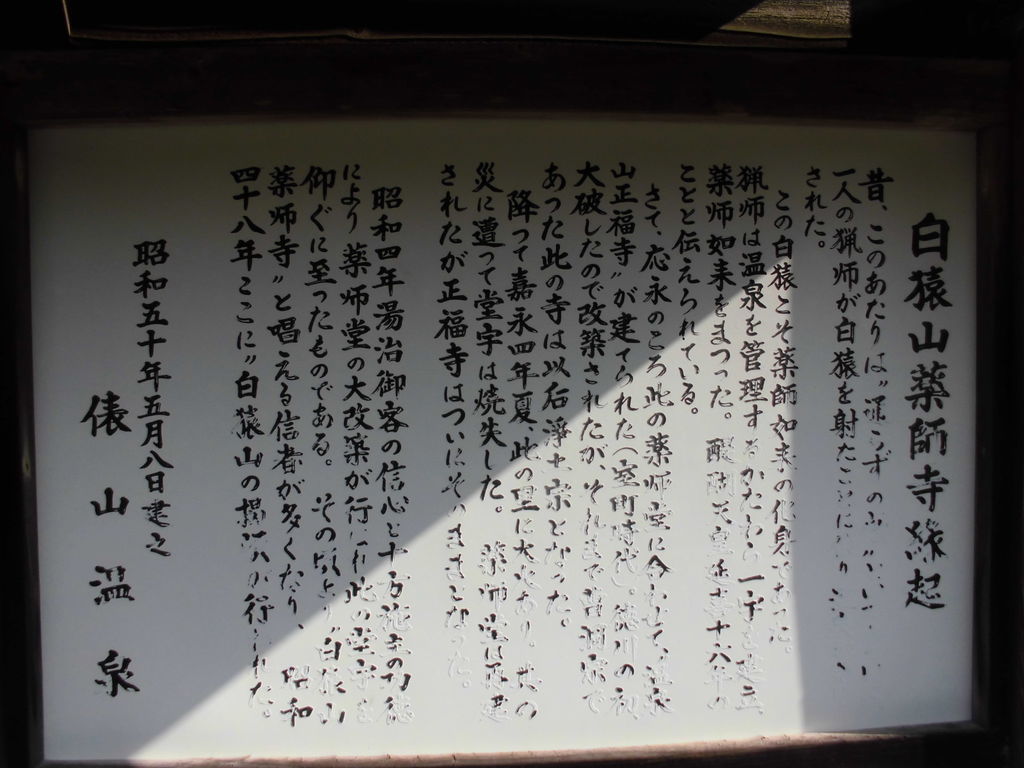 白猿山薬師寺縁起
昔、このあたりは〃
一人の猟師が白猿を射た
された。
この白猿こそ薬師如来の化身であった。
猟師は温泉を管理するかたわら一宇を建立
薬師如来をまつった。醍醐天皇延喜十六年の
ことと伝えられている。
さて、応永のころ此の薬師堂に合わせて、温泉
山正福寺〃が建てられた(室町時代)。徳川の初
大破したので改築されたが、それまで曹洞宗で
あった此の寺は以后浄土宗となった。
降って嘉永四年夏此の里に大火あり。其の
災に遭って堂宇は焼失した。薬師堂は再建
されたが正福寺はついにそのままとなった。
昭和四年湯治御客の信心と十方施主の功徳
により薬師堂の大改築が行われ此の堂宇を
仰ぐに至ったものである。その頃より〃白猿山
薬師寺〃と唱える信者が多くなり、昭和
四十八年ここに〃白猿山の
昭和五十年五月八日建之
俵山温泉